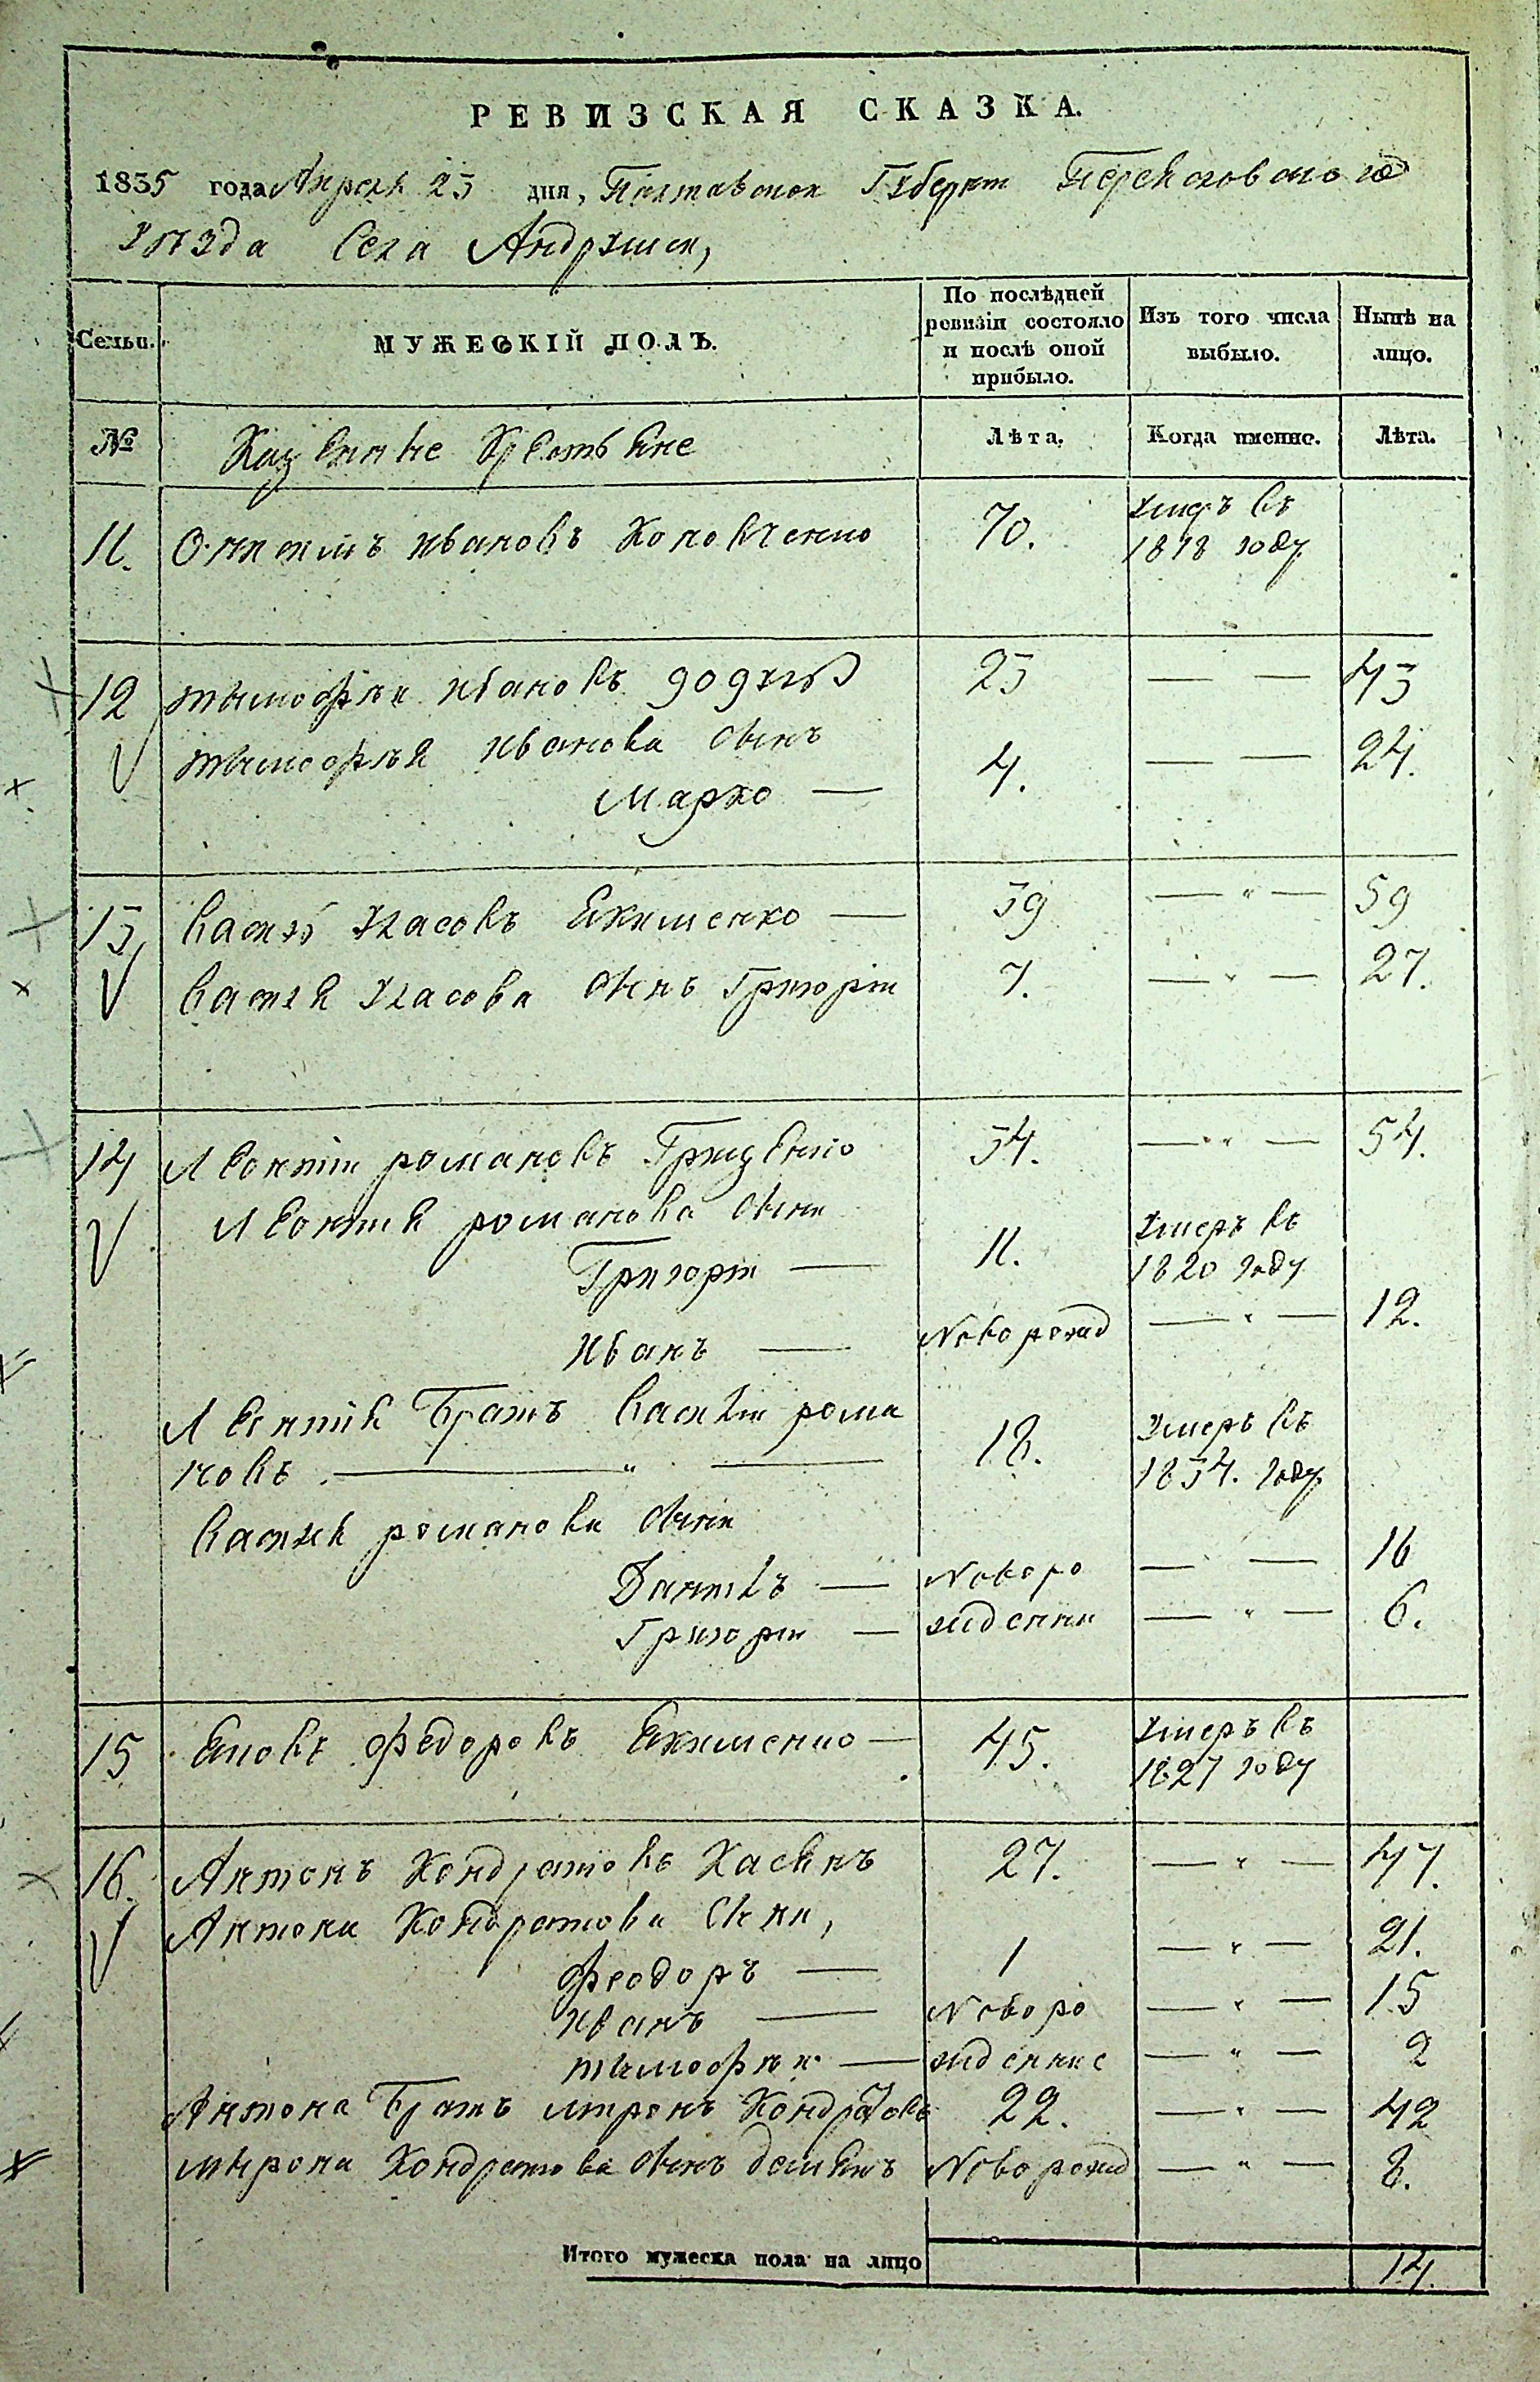 РЕВИЗСКАЯ СКАЗКА.
1835 года Апреля 23 дня, Полтавской Губернии Переясловского
уезда Села Андруши,
Семьи.
МУЖЕСКІЙ ПОЛЪ.
По послѣдней ревизіи состояло и послѣ оной прибыло.
Изъ того числа выбыло.
Нынѣ на лицо.
№
Казенные Крестьяне
Лѣта.
Когда именно.
Лѣта.
11. Ивановъ 70. умеръ въ
1818 году
12 тимофей Ивановъ 23 — — 43
тимофея иванова сынъ
Марко — 4. — — 24.
13 Василь Уласовъ Екименко — 39 — " — 59
Василя Уласова сынъ Григорій 7. — " — 27.
14 Леонтій романовъ Гриценко 34. — " — 54.
Леонтія романова сыни
Григорій — 11. умеръ въ
1820 году
Иванъ — Новорожд — " — 12.
Леонтія Братъ Василій рома
новъ — " — 18. умеръ въ
1834. году
Василя романова сыни
Данилъ — Новоро — — 16
Григорій — ждении — " — 6.
15 Яковъ федоровъ Екименко — 45. умеръ въ
1827 году
16. Антонъ Кондратовъ Касянъ 27. — " — 47.
Антона Кондратова Сыни,
феодоръ — 1 — " — 21.
Иванъ — Новоро — " — 15
тимофей — ждение — " — 2
Антона Братъ миронъ Кондратовъ 22. — " — 42
мирона Кондратова сынъ демянъ Новорожд — " — 8.
Итого мужеска пола на лицо 14.